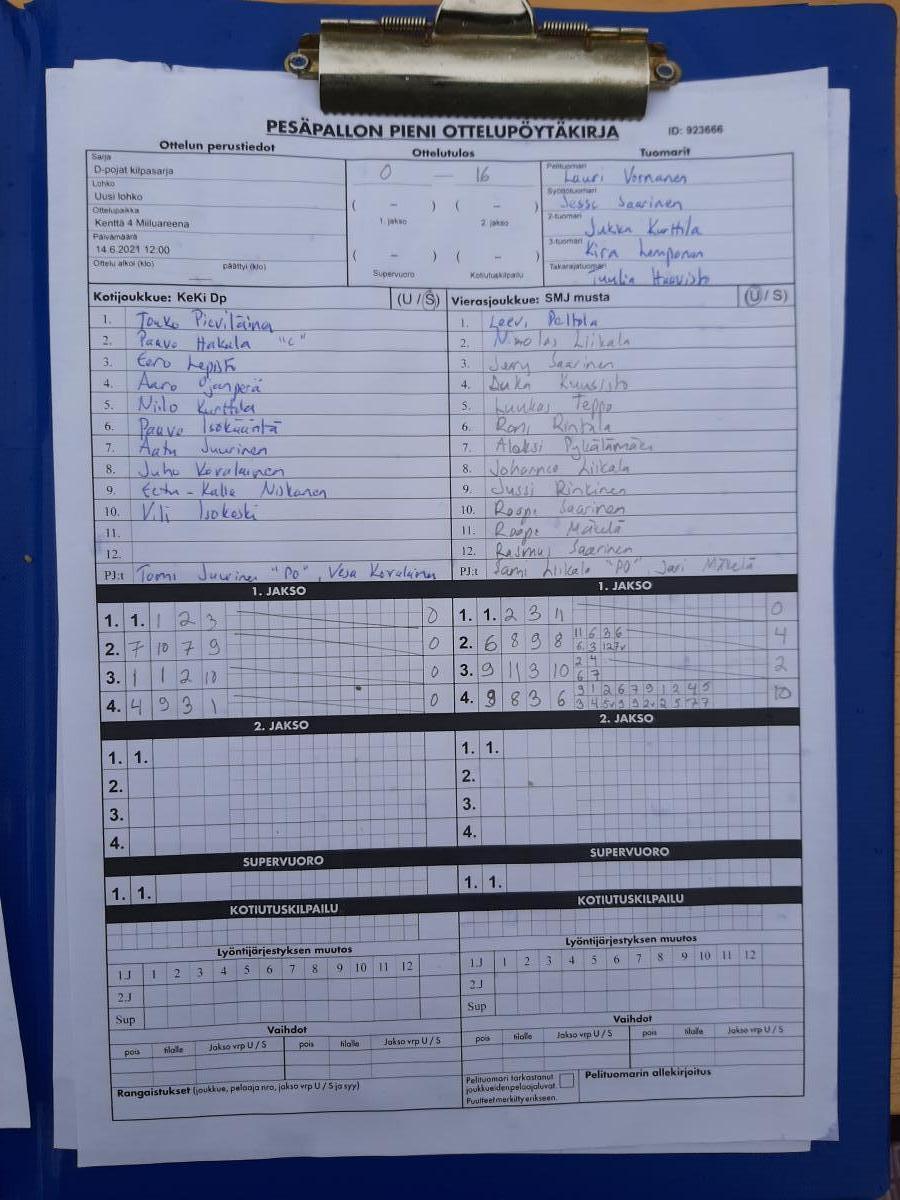 PESÄPALLON PIENI OTTELUPÖYTÄKIRJA ID: 923666
Ottelun perustiedot Ottelutulos Tuomarit
Sarja
D-pojat kilpasarja
Lohko
Uusi lohko
Ottelupaikka
Kenttä 4 Miiluareena
Päivämäärä
14.6.2021 12:00
Ottelu alkoi (klo) päättyi (klo)
0 — 16
( – ) ( – )
1. jakso 2. jakso
( – ) ( – )
Supervuoro Kotiutuskilpailu
Pelituomari
Lauri Vornanen
Syöttötuomari
Jesse Saarinen
2-tuomari
Jukka Kurttila
3-tuomari
Kira Lemponen
Takarajatuomari
Tuulia Haavisto
Kotijoukkue: KeKi Dp (U / S)
1. Touko Pieviläinen
2. Paavo Hakala "C"
3. Eero Leppistö
4. Aaro Ojanperä
5. Niilo Kurttila
6. Paavo Isokääntä
7. Aatu Juurinen
8. Juho Kovalainen
9. Eetu-Kalle Niskanen
10. Vili Isokoski
11.
12.
PJ:t Tomi Juurinen "PO", Vesa Kovalainen
Vierasjoukkue: SMJ musta (U / S)
1. Leevi Peltola
2. Nikolas Liikala
3. Jerry Saarinen
4. Kuusisto
5. Luukas Teppo
6. Roni Rintala
7. Aleksi Pykälämäki
8. Johannes Liikala
9. Jussi Rinkinen
10. Roope Saarinen
11. Roope Mäkelä
12. Rasmus Saarinen
PJ:t Sami Liikala "PO" Jari Mäkelä
1. JAKSO 1. JAKSO
1. 1. 1 2 3 0
2. 7 10 7 9 0
3. 1 1 2 10 0
4. 4 9 3 1 0
1. 1. 2 3 4 0
2. 6 8 9 8 11 6 3 6 4
6 3 12 7v
3. 9 11 3 10 2 4 2
6 7
4. 9 8 3 6 9 1 2 6 7 9 1 2 4 5 10
3 4 5v 9 9 2v 2 5 7 7
2. JAKSO 2. JAKSO
1. 1.
2.
3.
4.
1. 1.
2.
3.
4.
SUPERVUORO SUPERVUORO
1. 1. 1. 1.
KOTIUTUSKILPAILU KOTIUTUSKILPAILU
Lyöntijärjestyksen muutos Lyöntijärjestyksen muutos
1.J 1 2 3 4 5 6 7 8 9 10 11 12 1.J 1 2 3 4 5 6 7 8 9 10 11 12
2.J 2.J
Sup Sup
Vaihdot Vaihdot
pois tilalle Jakso vrp U / S pois tilalle Jakso vrp U / S pois tilalle Jakso vrp U / S pois tilalle Jakso vrp U / S
Rangaistukset (joukkue, pelaaja nro, jakso vrp U / S ja syy)
Pelituomari tarkastanut
joukkueiden pelaajaluvat.
Puutteet merkitty erikseen.
Pelituomarin allekirjoitus